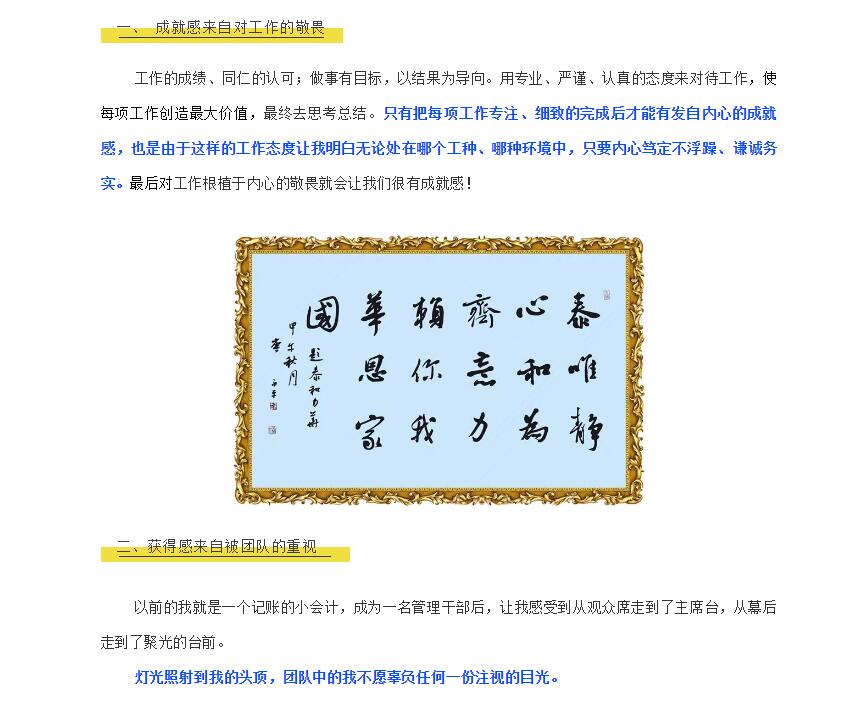 一、 成就感来自对工作的敬畏
工作的成绩、同仁的认可；做事有目标，以结果为导向。用专业、严谨、认真的态度来对待工作，使
每项工作创造最大价值，最终去思考总结。只有把每项工作专注、细致的完成后才能有发自内心的成就
感，也是由于这样的工作态度让我明白无论处在哪个工种、哪种环境中，只要内心笃定不浮躁、谦诚务
实。最后对工作根植于内心的敬畏就会让我们很有成就感！
泰唯靜
心和為
齊意力
賴你我
華思家
國
題泰和力華
甲午秋月
二、获得感来自被团队的重视
以前的我就是一个记账的小会计，成为一名管理干部后，让我感受到从观众席走到了主席台，从幕后
走到了聚光的台前。
灯光照射到我的头顶，团队中的我不愿辜负任何一份注视的目光。